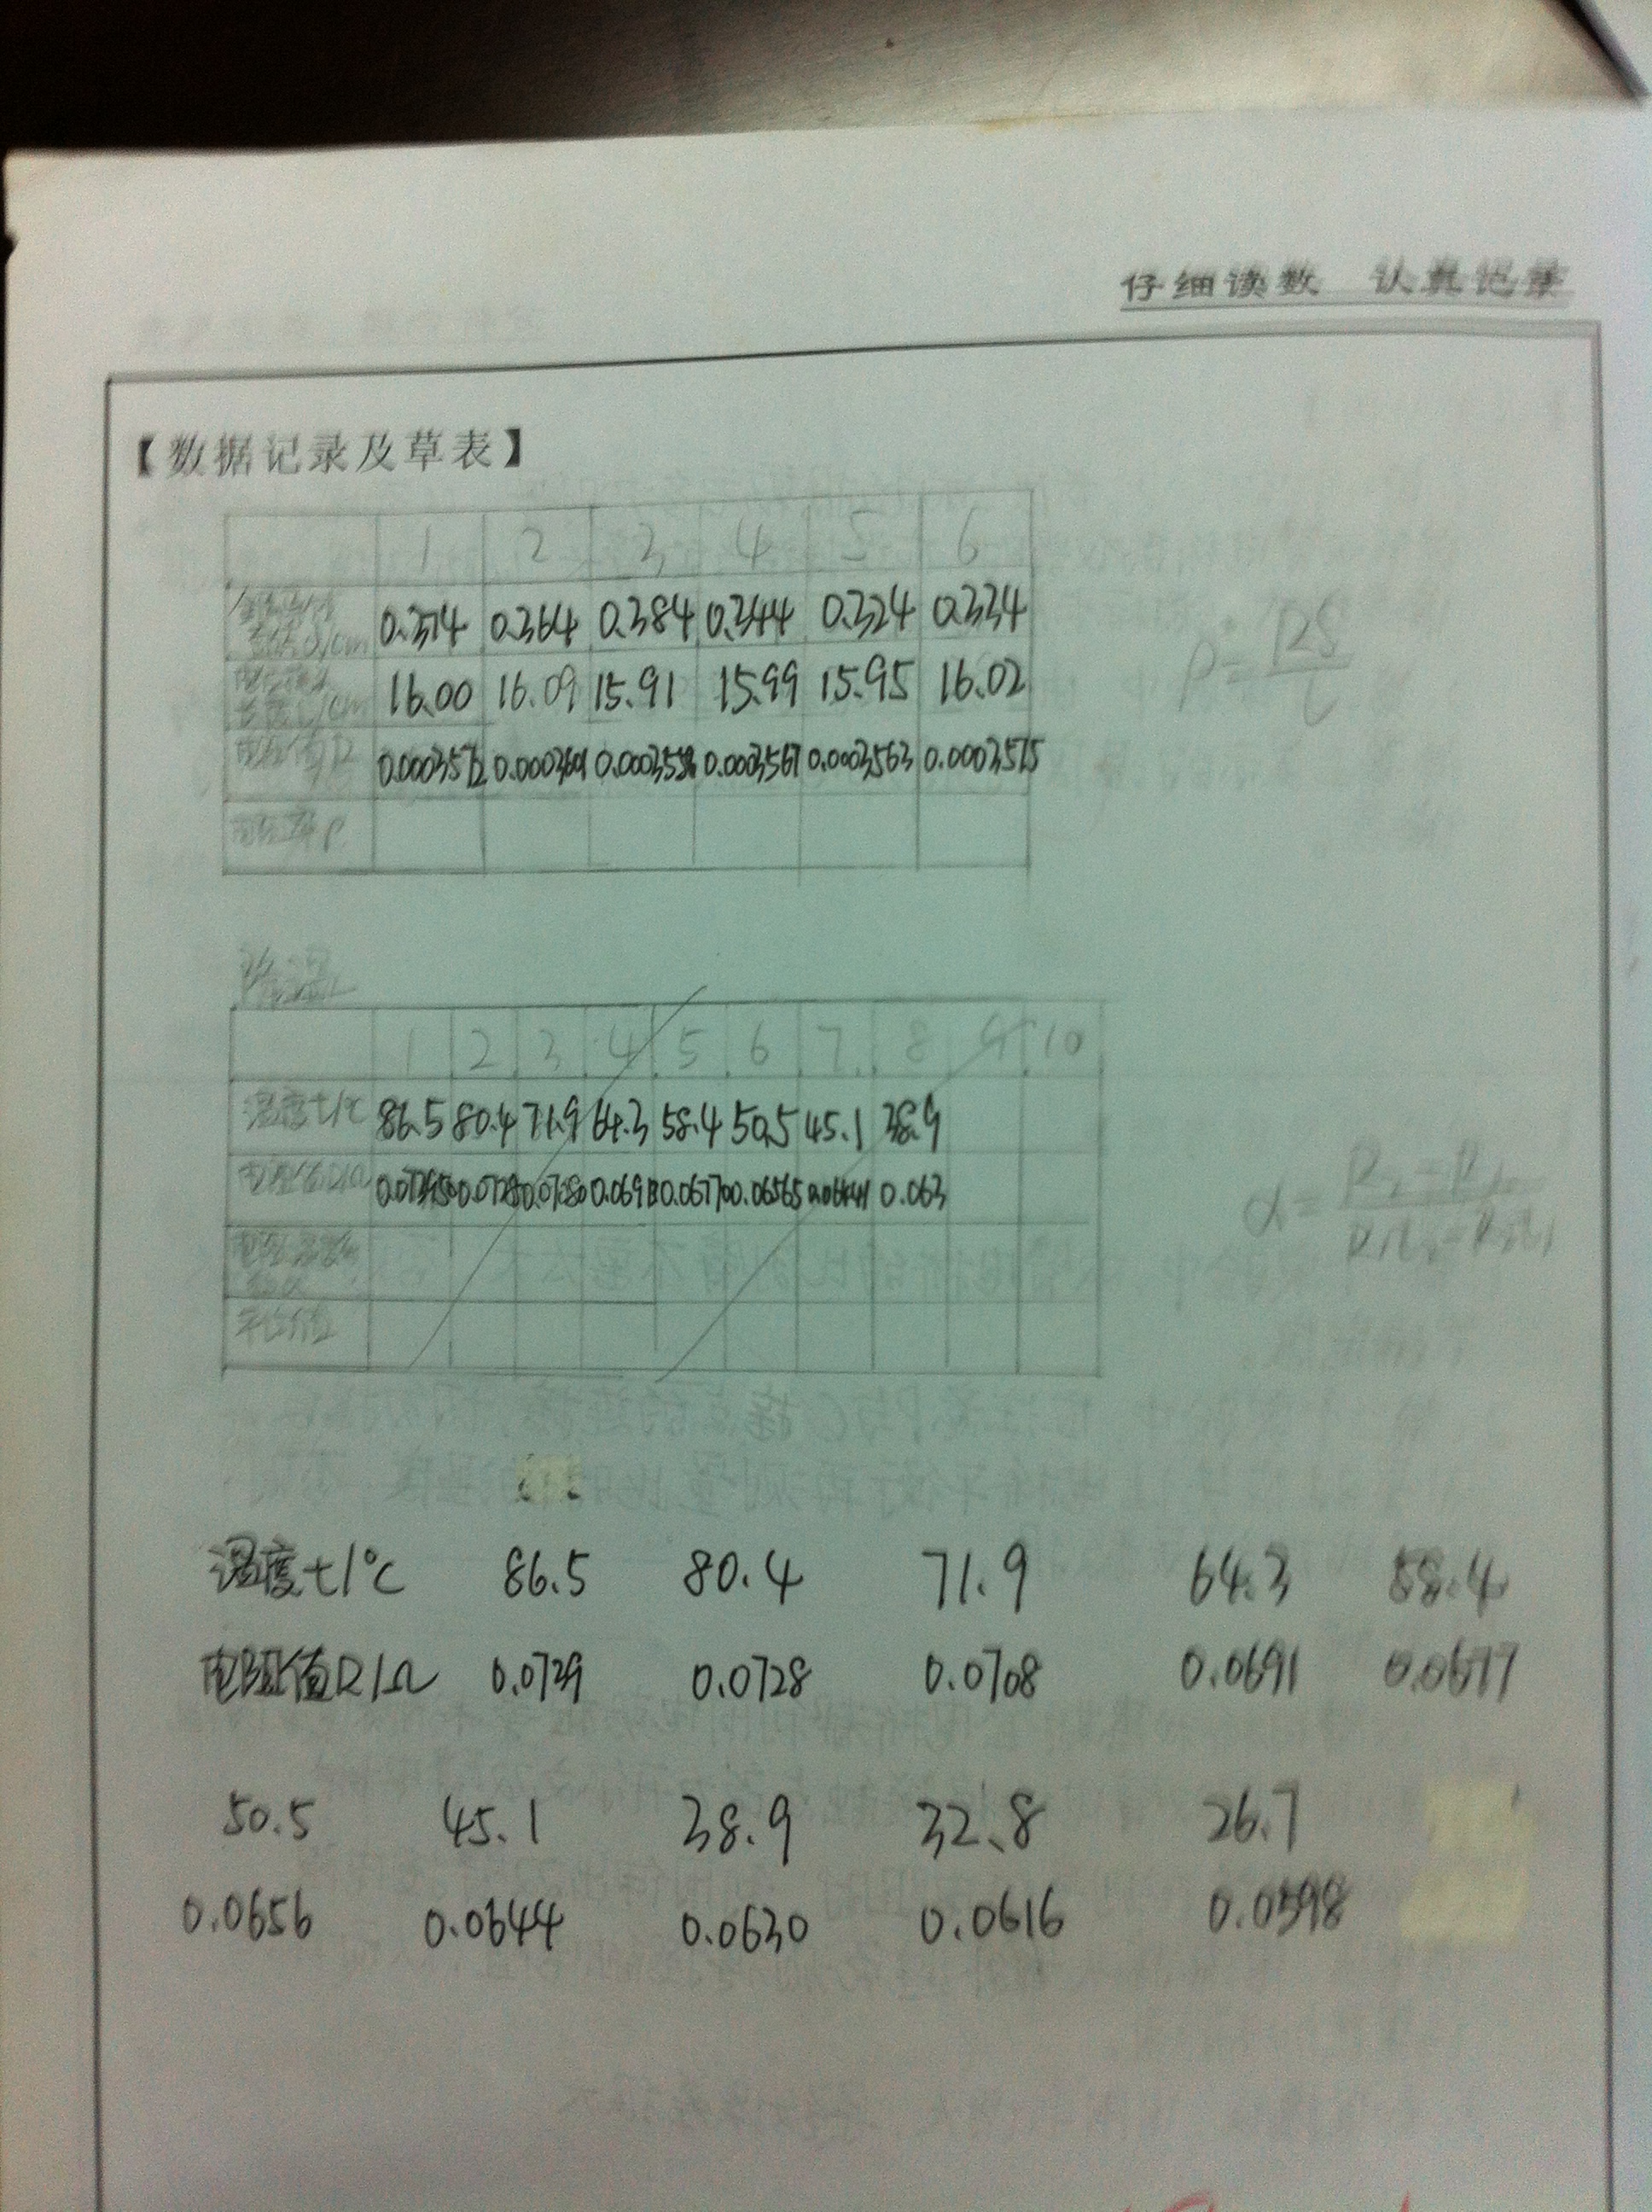 仔细读数 认真记录
【数据记录及草表】
1 2 3 4 5 6
直径D/cm 0.374 0.364 0.384 0.344 0.324 0.334
长度L/cm 16.00 16.09 15.91 15.99 15.95 16.02
电阻值R 0.0003572 0.0003567 0.0003563 0.0003575
电阻率ρ
ρ=RS/L
降温
1 2 3 4 5 6 7 8 9 10
温度t/℃ 86.5 80.4 71.9 64.3 58.4 50.5 45.1 38.9
电阻值R/Ω 0.06770 0.06565 0.06441 0.063
平均值
α=
温度t/℃ 86.5 80.4 71.9 64.3 58.4
电阻值R/Ω 0.0729 0.0728 0.0708 0.0691 0.0677
50.5 45.1 38.9 32.8 26.7
0.0656 0.0644 0.0630 0.0616 0.0598